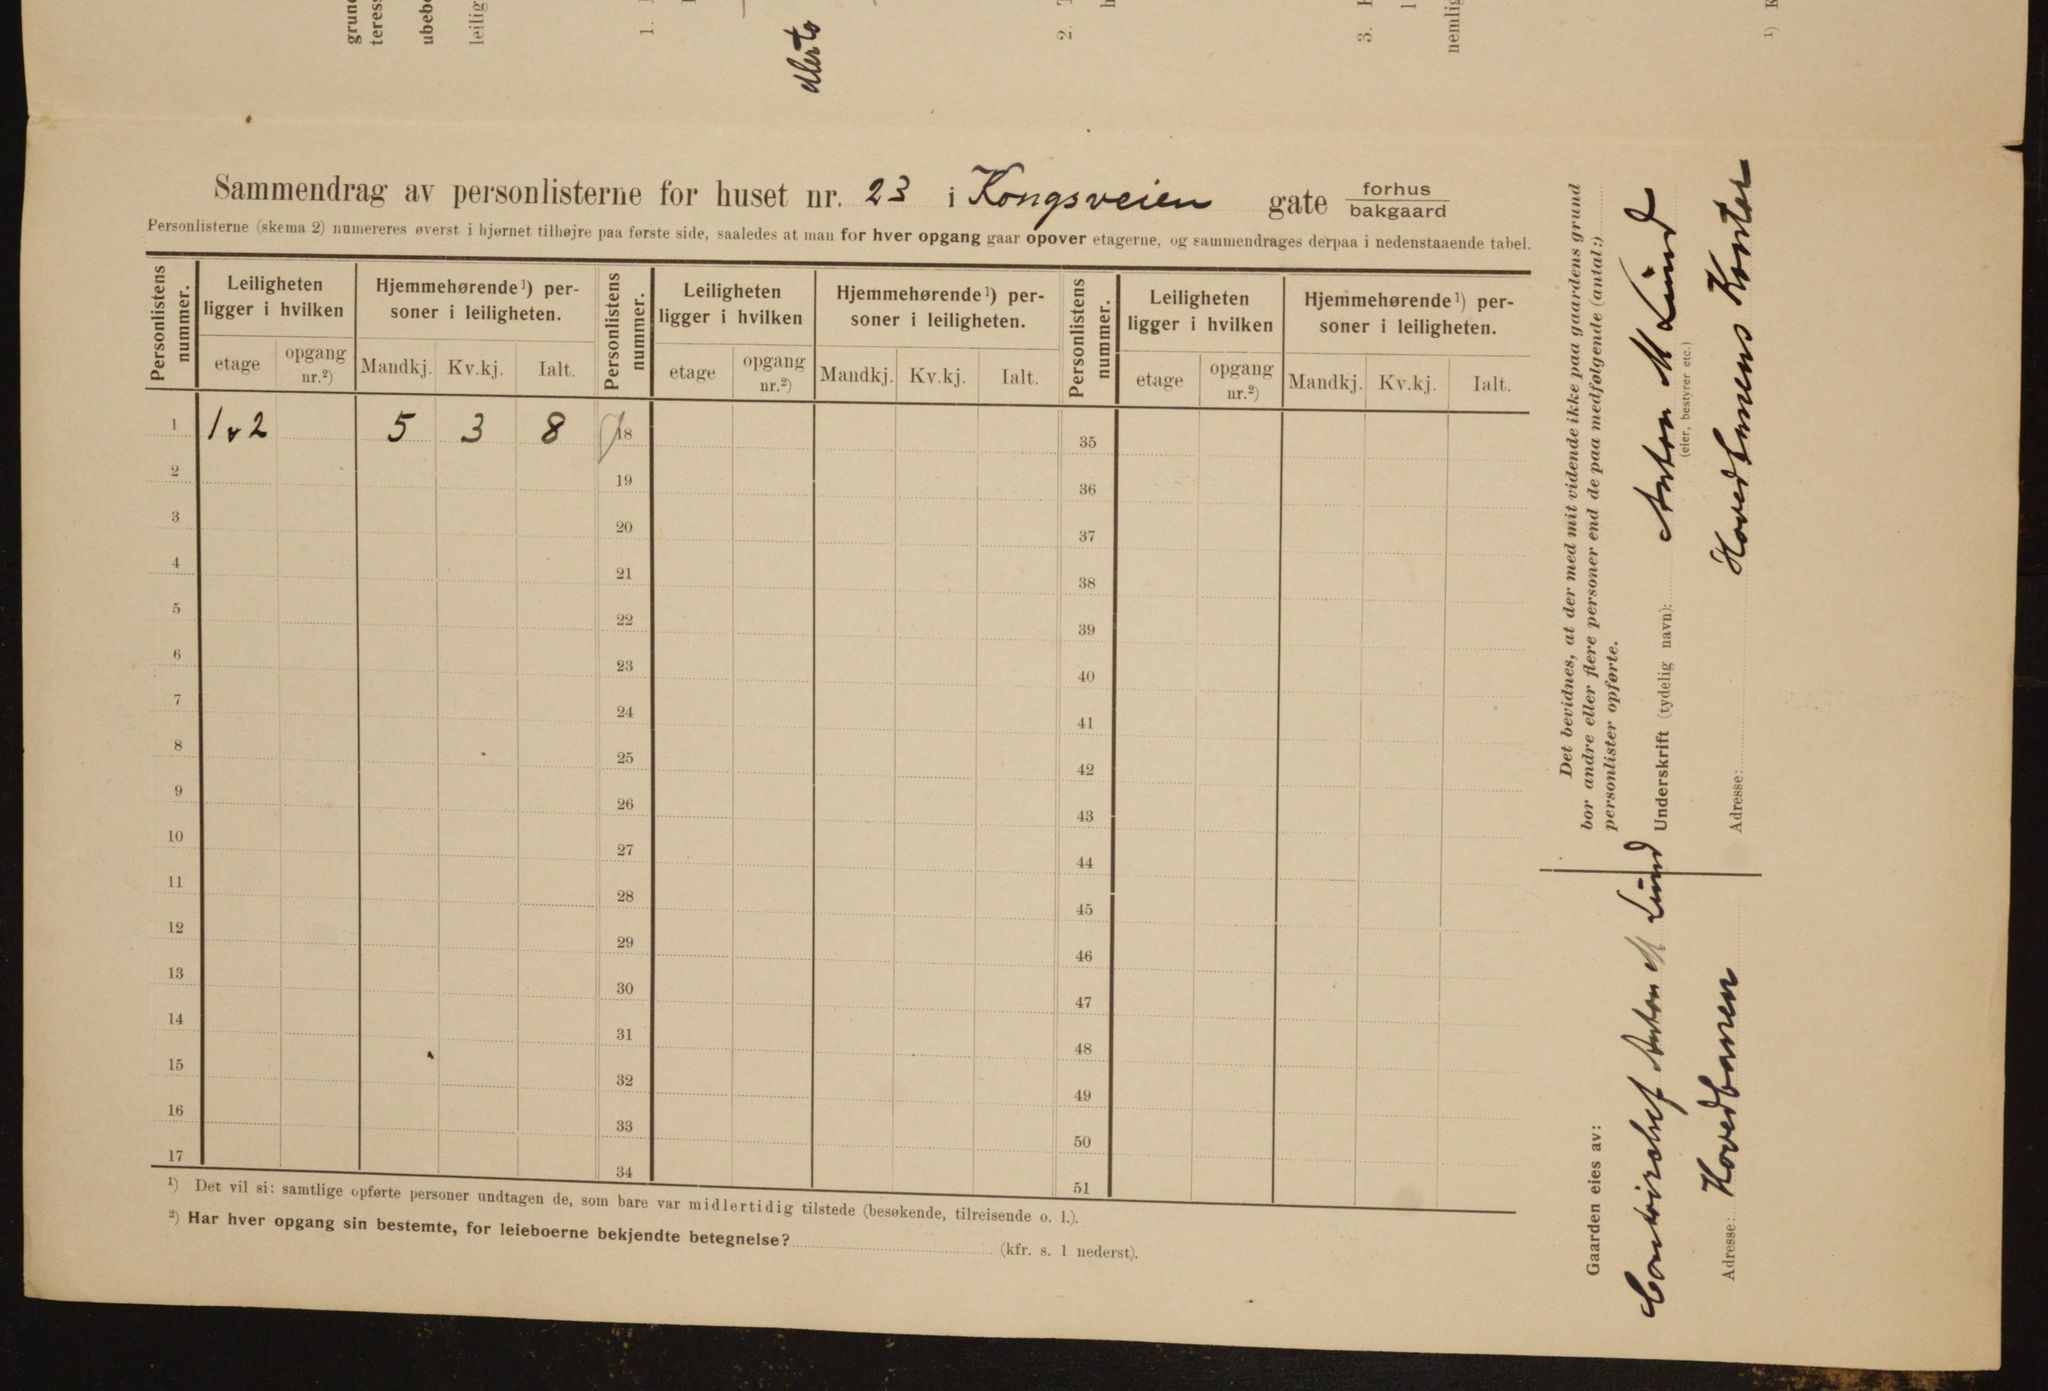 grund
teress
ubebo
leilig
1.
ellerto
2. T
h
3. F
l
nemlig
¹) K
Sammendrag av personlisterne for huset nr. 23 i Kongsveien gate forhus
bakgaard
Personlisterne (skema 2) numereres øverst i hjørnet tilhøjre paa første side, saaledes at man for hver opgang gaar opover etagerne, og sammendrages derpaa i nedenstaaende tabel.
Personlistens nummer. Leiligheten ligger i hvilken Hjemmehørende¹) personer i leiligheten. Personlistens nummer. Leiligheten ligger i hvilken Hjemmehørende¹) personer i leiligheten. Personlistens nummer. Leiligheten ligger i hvilken Hjemmehørende¹) personer i leiligheten.
etage opgang nr.²) Mandkj. Kv.kj. Ialt. etage opgang nr.²) Mandkj. Kv.kj. Ialt. etage opgang nr.²) Mandkj. Kv.kj. Ialt.
1 1 & 2 5 3 8 18 35
2 19 36
3 20 37
4 21 38
5 22 39
6 23 40
7 24 41
8 25 42
9 26 43
10 27 44
11 28 45
12 29 46
13 30 47
14 31 48
15 32 49
16 33 50
17 34 51
¹) Det vil si: samtlige opførte personer undtagen de, som bare var midlertidig tilstede (besøkende, tilreisende o. l.).
²) Har hver opgang sin bestemte, for leieboerne bekjendte betegnelse? (kfr. s. 1 nederst).
Det bevidnes, at der med mit vidende ikke paa gaardens grund
bor andre eller flere personer end de paa medfølgende (antal:)
personlister opførte.
Underskrift (tydelig navn): Anton M Lund
(eier, bestyrer etc.)
Adresse: Hovedbanens Kontor
Gaarden eies av:
Contorchef Anton M Lund
Adresse: Hovedbanen